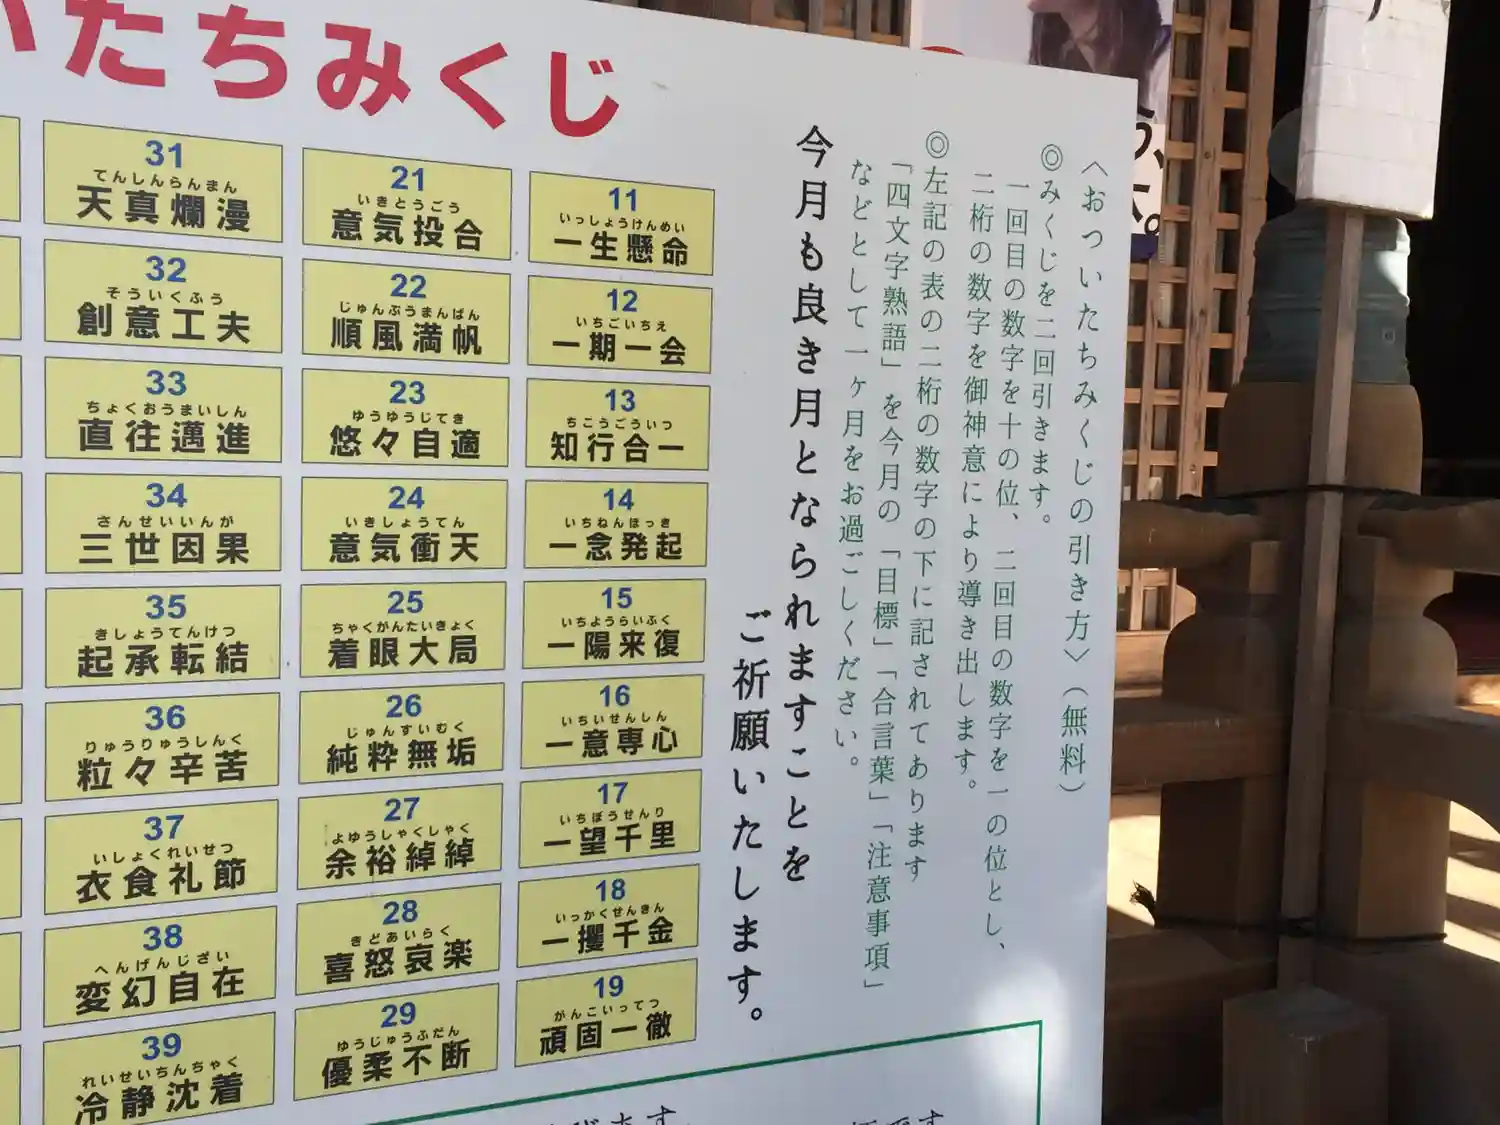 いたちみくじ
〈おついたちみくじの引き方〉（無料）
◎みくじを二回引きます。
一回目の数字を十の位、二回目の数字を一の位とし、
二桁の数字を御神意により導き出します。
◎左記の表の二桁の数字の下に記されてあります
「四文字熟語」を今月の「目標」「合言葉」「注意事項」
などとして一ヶ月をお過ごしください。
今月も良き月となられますことを
ご祈願いたします。
11
いっしょうけんめい
一生懸命
12
いちごいちえ
一期一会
13
ちこうごういつ
知行合一
14
いちねんほっき
一念発起
15
いちようらいふく
一陽来復
16
いちいせんしん
一意専心
17
いちぼうせんり
一望千里
18
いっかくせんきん
一攫千金
19
がんこいってつ
頑固一徹
21
いきとうごう
意気投合
22
じゅんぷうまんぱん
順風満帆
23
ゆうゆうじてき
悠々自適
24
いきしょうてん
意気衝天
25
ちゃくがんたいきょく
着眼大局
26
じゅんすいむく
純粋無垢
27
よゆうしゃくしゃく
余裕綽綽
28
きどあいらく
喜怒哀楽
29
ゆうじゅうふだん
優柔不断
31
てんしんらんまん
天真爛漫
32
そういくふう
創意工夫
33
ちょくおうまいしん
直往邁進
34
さんせいいんが
三世因果
35
きしょうてんけつ
起承転結
36
りゅうりゅうしんく
粒々辛苦
37
いしょくれいせつ
衣食礼節
38
へんげんじざい
変幻自在
39
れいせいちんちゃく
冷静沈着